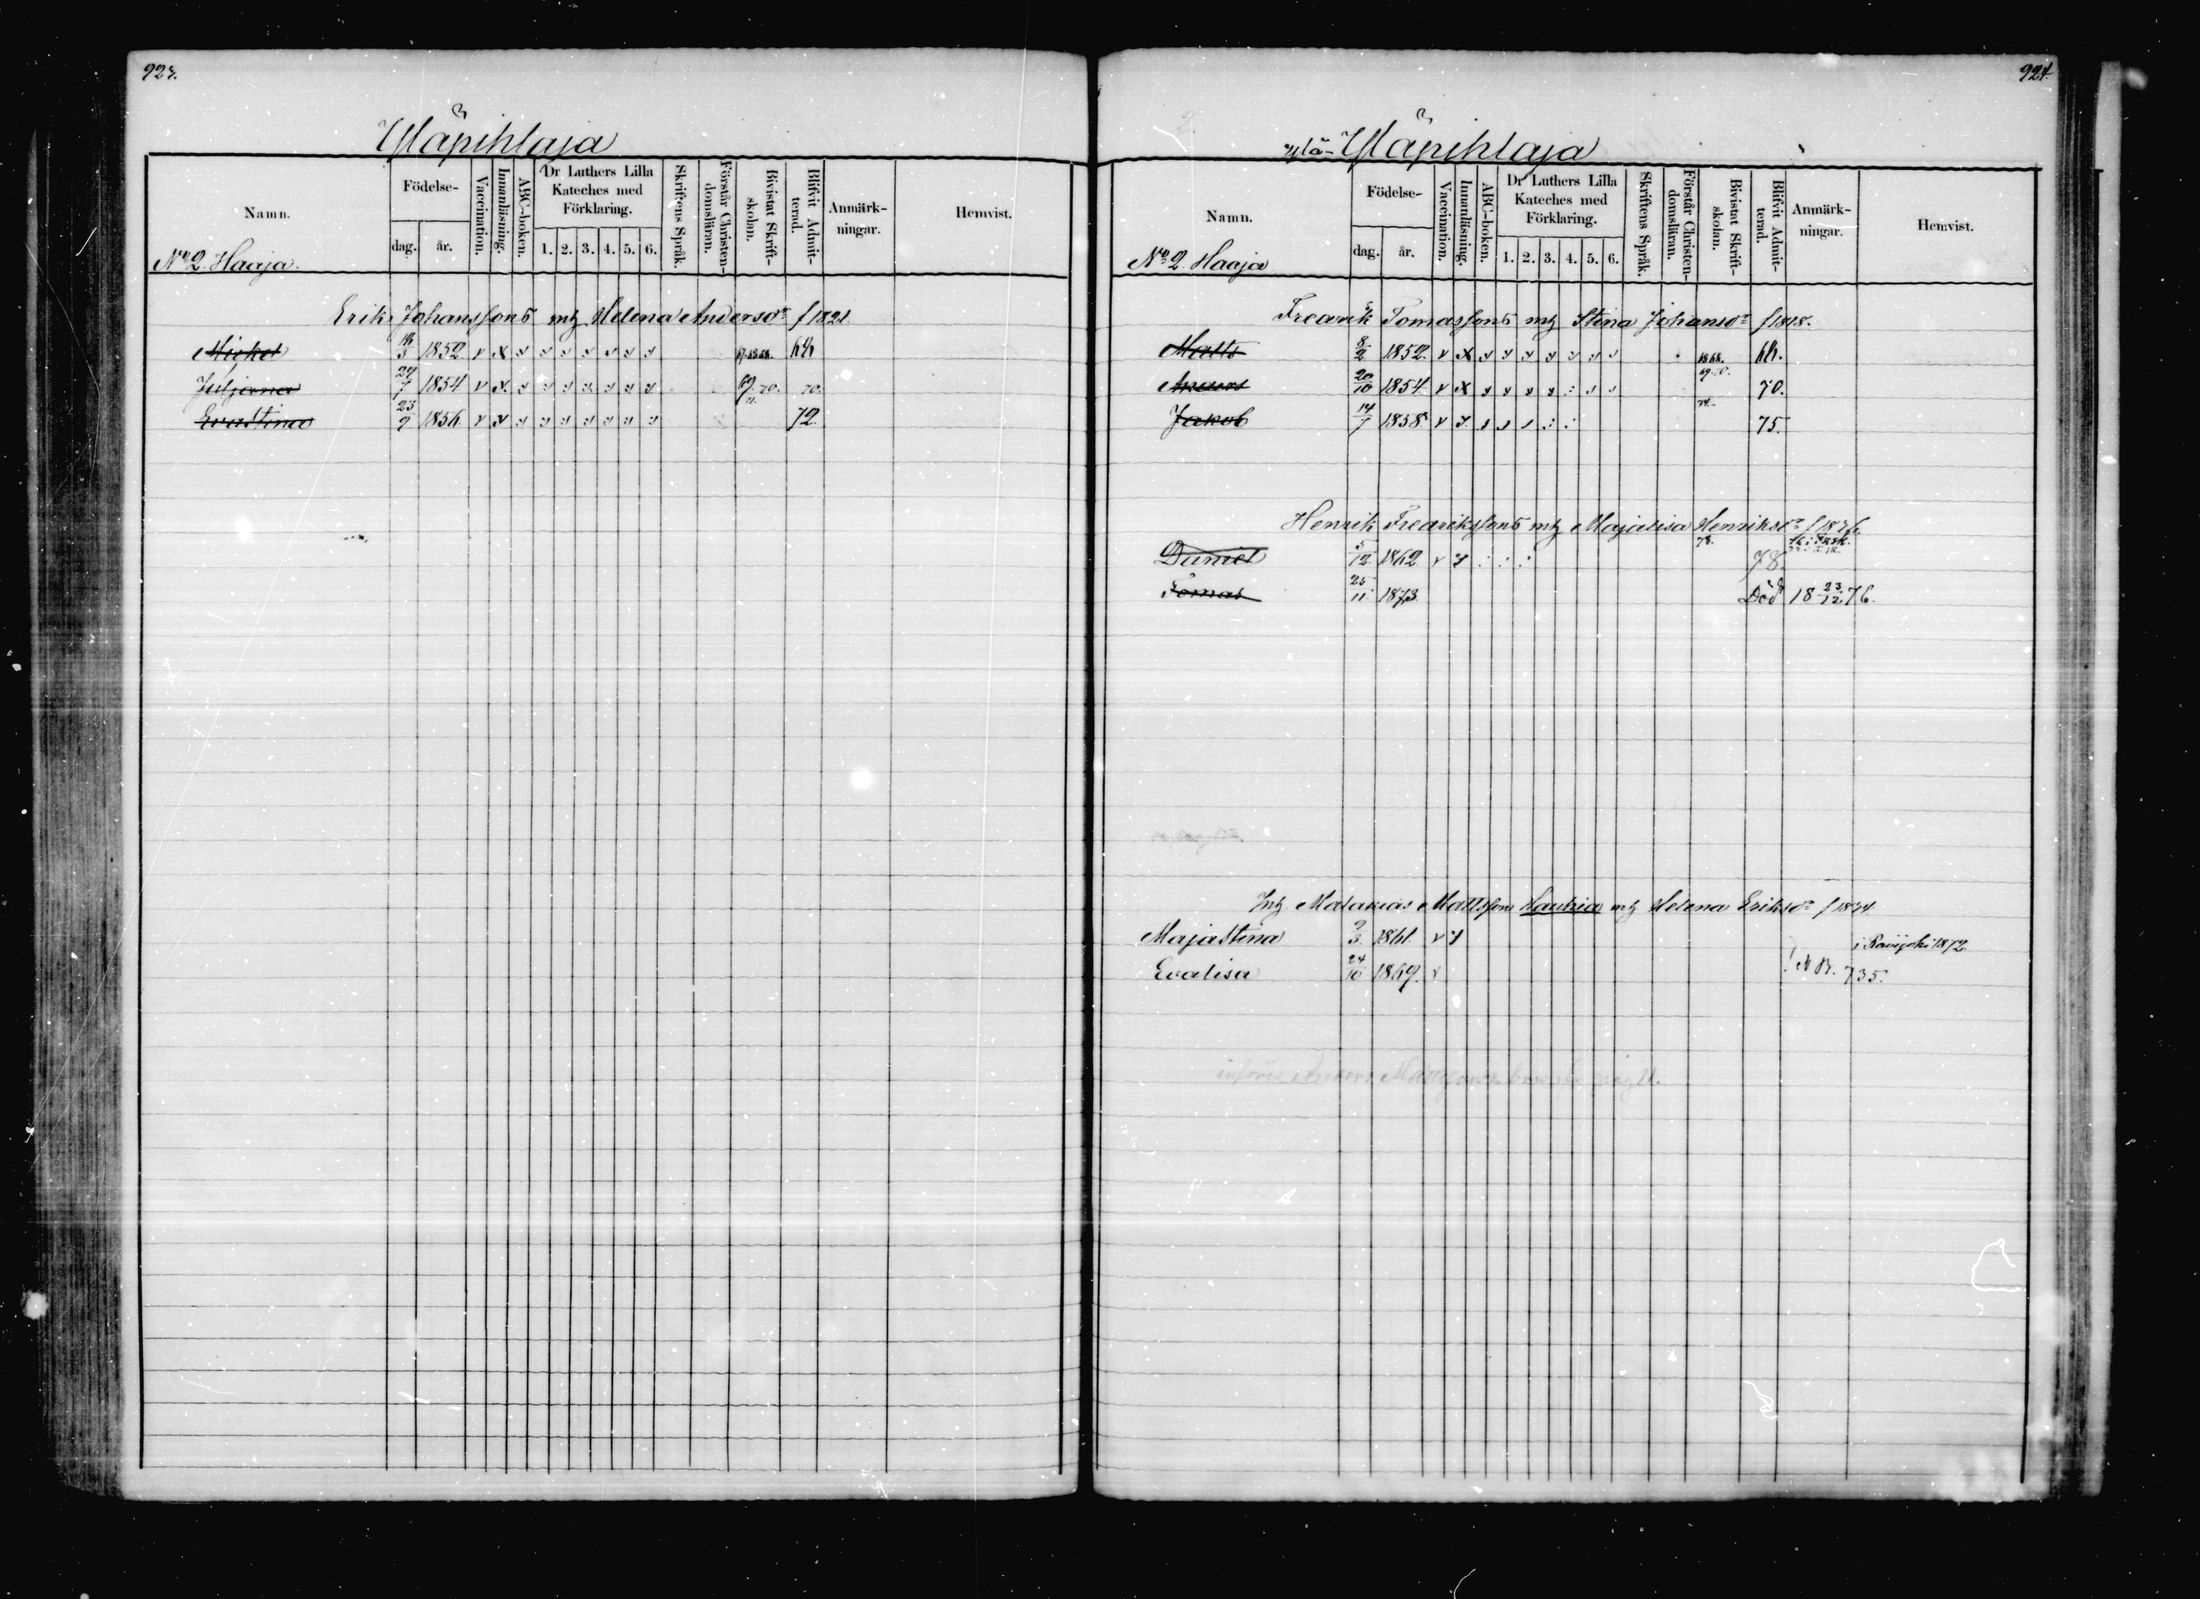 923.
Yläpihlaja
Namn.
Födelse-
dag.
år.
Vaccination.
Innanläsning.
ABC-boken.
Dr Luthers Lilla
Kateches med
Förklaring.
1. 2. 3. 4. 5. 6.
Skriftens Språk.
Förstår Christen-
domsläran.
Bivistat Skrift-
skolan.
Blifvit Admit-
terad.
Anmärk-
ningar.
Hemvist.
No 2. Haaja.
Erik Johanssons mh Helena Andersdr f 1821
Michel 16/3 1852 v x 67. 68. 68
Juljana 29/7 1854 v x 69. 70. 70.
Evastina 23/9 1856 v x 72.
924.
Ylä- Yläpihlaja
Namn.
Födelse-
dag.
år.
Vaccination.
Innanläsning.
ABC-boken.
Dr Luthers Lilla
Kateches med
Förklaring.
1. 2. 3. 4. 5. 6.
Skriftens Språk.
Förstår Christen-
domsläran.
Bivistat Skrift-
skolan.
Blifvit Admit-
terad.
Anmärk-
ningar.
Hemvist.
No 2. Haaja
Fredrik Tomassons mh Stina Johansdr f 1818.
Matts 8/2 1852. v x 1868. 68.
Anders 20/10 1854 v x 69. 70. 70.
Jakob 14/7 1858 v 74. 75.
Henrik Fredrikssons mh Majalisa Henriksdr f 1836
Daniel 5/12 1862 v 78. 78.
Tomas 25/11 1873 Död 18 23/12 76.
Inh Matts Mattsson mh Helena Eriksdr f 1834
Majastina 9/3 1861 v i 1872
Evalisa 24/10 1869. v N B. 735.